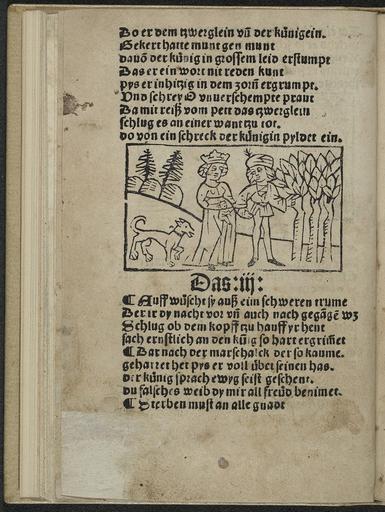 Do er dem tzwerglein vñ der künigein.
Gekert hatte munt gen munt
dauõ der künig in grossem leid erstumpt
Das er ein wort nit reden kunt
pys er inhitzig in dem zorñ ergrumpt.
Vnd schrey O vnuerschempte praut
Da mit reiß vom pett das tzwerglein
schlug es an einer want tzu tot.
do von ein schreck der künigin pyldet ein.
Das :iij:
¶ Auff wüscht sy auß eim schweren trume
Der ir dy nacht vor vñ auch nach gegãgẽ wz
Schlug ob dem kopff tzu hauff yr hent
sach ernstlich an den küig so hart ergrimet
¶ Dar nach der marschalck der so kaume.
geharret het pys er voll übet seinen has.
der künig sprach ewyg seist geschent.
du falsches weib dy mir all freüd benimet.
¶ Sterben must an alle gnadt